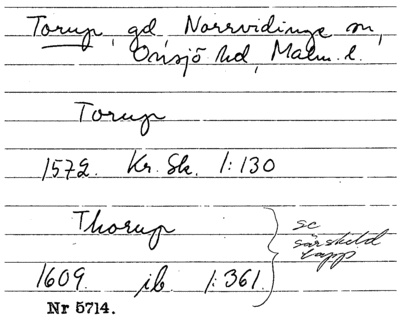 Torup, gd, Norrvidinge sn,
Onsjö hd, Malm. l.
Torup
1572. Kr. Sk. 1:130
Thorup
1609. ib. 1:361.
se
särskild
lapp
Nr 5714.